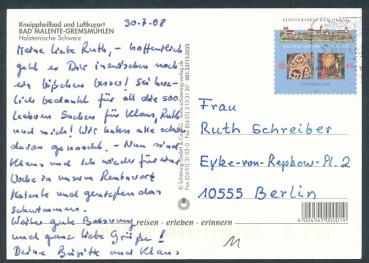 30.7.08
Kneippheilbad und Luftkurort
BAD MALENTE-GREMSMÜHLEN
Holsteinische Schweiz
Meine liebe Ruth, – hoffentlich
geht es Dir inzwischen noch
ein bißchen besser! Sei herz-
lich bedankt für all die
leckeren Sachen für Klaus, Ruth
und mich! Wir haben alle schön
davon genascht. – Nun sind
Klaus und ich wieder für eine
Woche in unserem
Malente und genießen das
Schwimmen.
Weiter gute Besserung
und ganz liebe Grüße!
Deine Brigitte und Klaus
reisen - erleben - erinnern
KLOSTERINSEL REICHENAU
DEUTSCHLAND
Frau
Ruth Schreiber
Eyke-von-Repkow-Pl. 2
10555 Berlin
4004545000019